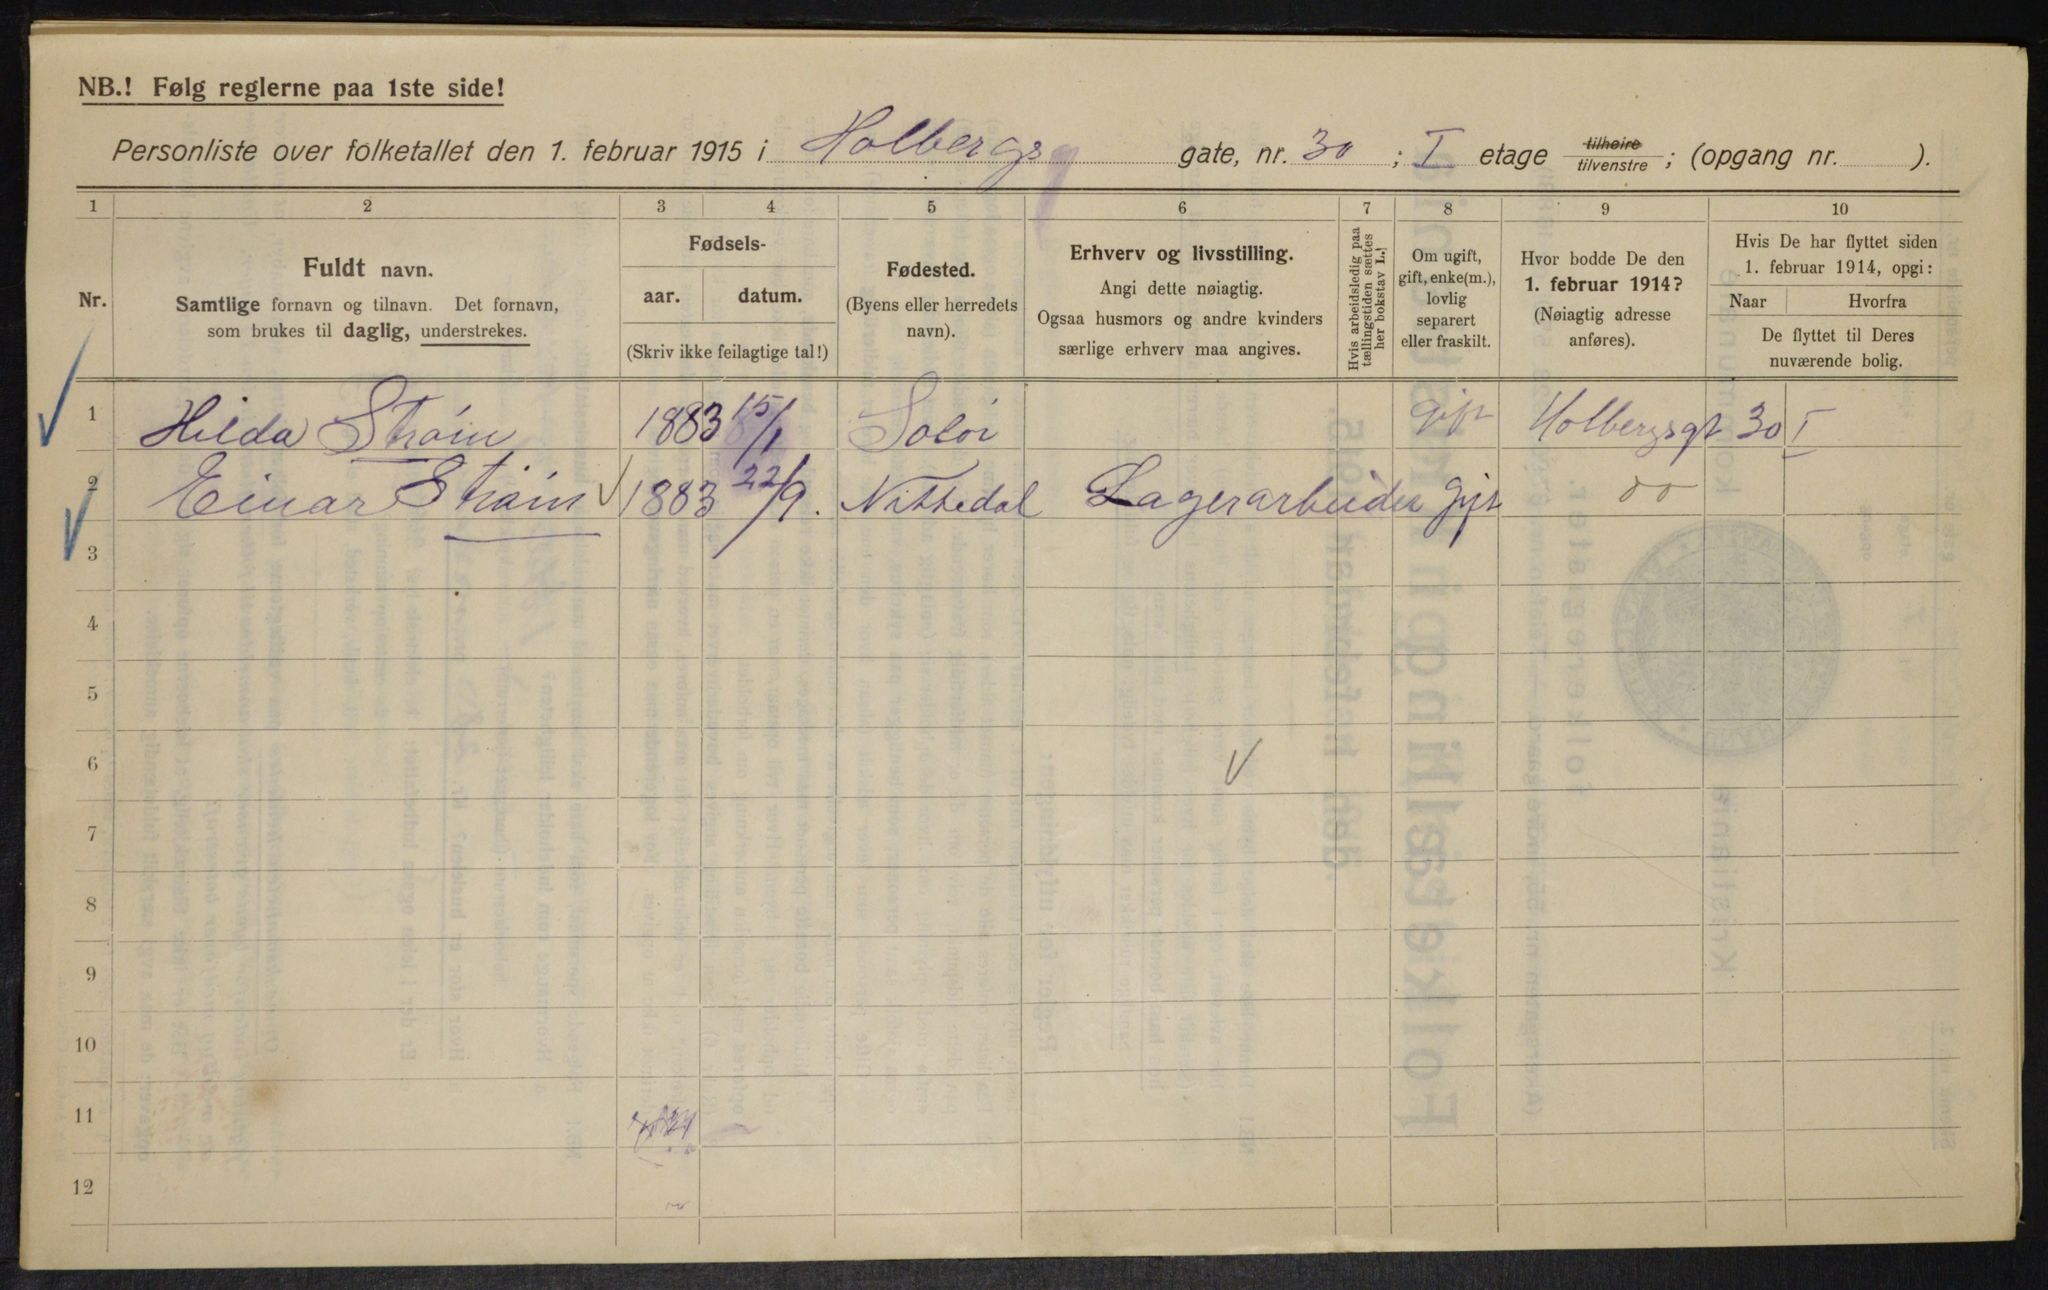 NB.! Følg reglerne paa 1ste side!
Personliste over folketallet den 1. februar 1915 i Holbergs gate, nr. 30 ; I etage tilhøire tilvenstre ; (opgang nr. ).
1 2 3 4 5 6 7 8 9 10
Nr.
Fuldt navn.
Samtlige fornavn og tilnavn. Det fornavn,
som brukes til daglig, understrekes.
Fødsels-
aar. datum.
(Skriv ikke feilagtige tal!)
Fødested.
(Byens eller herredets
navn).
Erhverv og livsstilling.
Angi dette nøiagtig.
Ogsaa husmors og andre kvinders
særlige erhverv maa angives.
Hvis arbeidsledig paa
tællingstiden sættes
her bokstav L.!
Om ugift,
gift, enke(m.),
lovlig
separert
eller fraskilt.
Hvor bodde De den
1. februar 1914?
(Nøiagtig adresse
anføres).
Hvis De har flyttet siden
1. februar 1914, opgi:
Naar Hvorfra
De flyttet til Deres
nuværende bolig.
1 Hilda Strøm 1883 15/1 Solør gift Holbergsgt 30 I
2 Einar Strøm 1883 22/9. Nittedal Lagerarbeider gift do
3
4
5
6
7
8
9
10
11
12